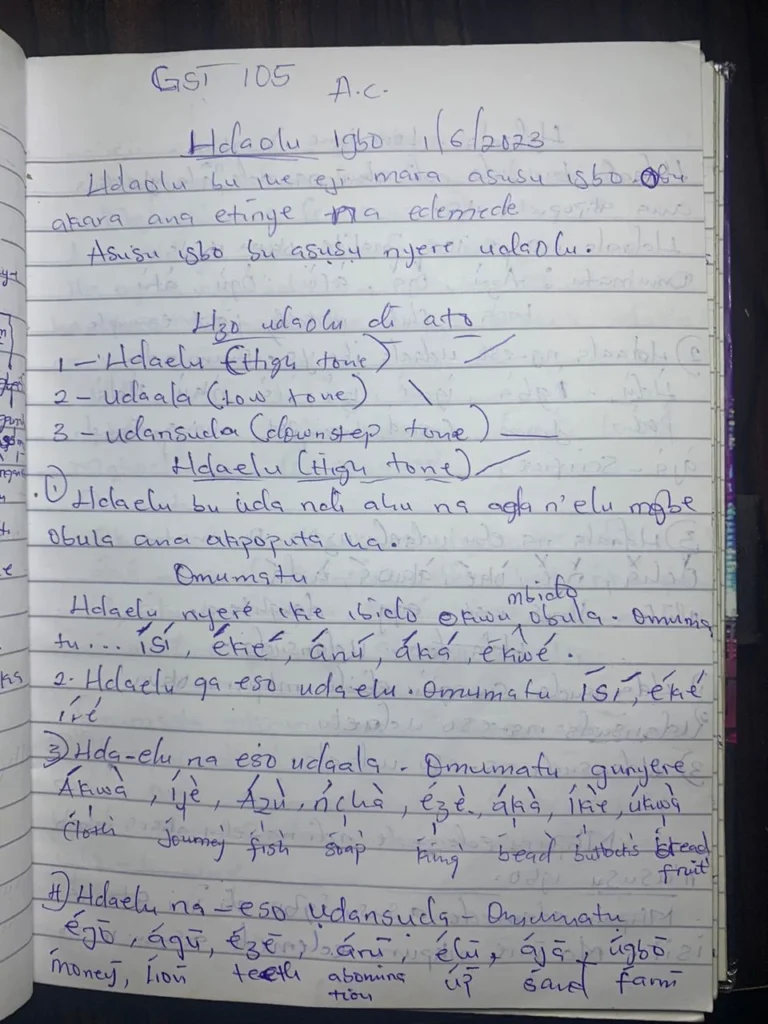 GST 105 A.C.
Udaolu Igbo 1/6/2023
Udaolu bu ihe eji mara asusu igbo. O bu
akara ana etinye na edemede
Asusu igbo bu asụsụ nyere udaolu.
Uzo udaolu di ato
1 - Udaelu (High tone) /
2 - udaala (Low tone) \
3 - udansuda (downstep tone) —
Udaelu (High tone) /
① Udaelu bu uda ndi ahu na aga n'elu mgbe
obula ana akpoputa ha.
Omumatu
mbido
Udaelu nyere ike ibido okwu obula. Omuma
tu... ísí, ékié, ánú, áká, ékwé.
2. Udaelu ga eso udaelu. Omumatu ísí, éké
íré
3) Uda-elu na eso udaala. Omumatu gunyere
Ákwà, íjè, Ázù, ńchà, ézè, ákà, íkè, úkwà
cloth journey fish soap king bead buttocks bread
fruit
4) Udaelu na-eso udansuda - Omumatu
égō, ágū, ézē, árū, élū, ájā, úgbō
money, lion teeth abomina up sand farm
tion